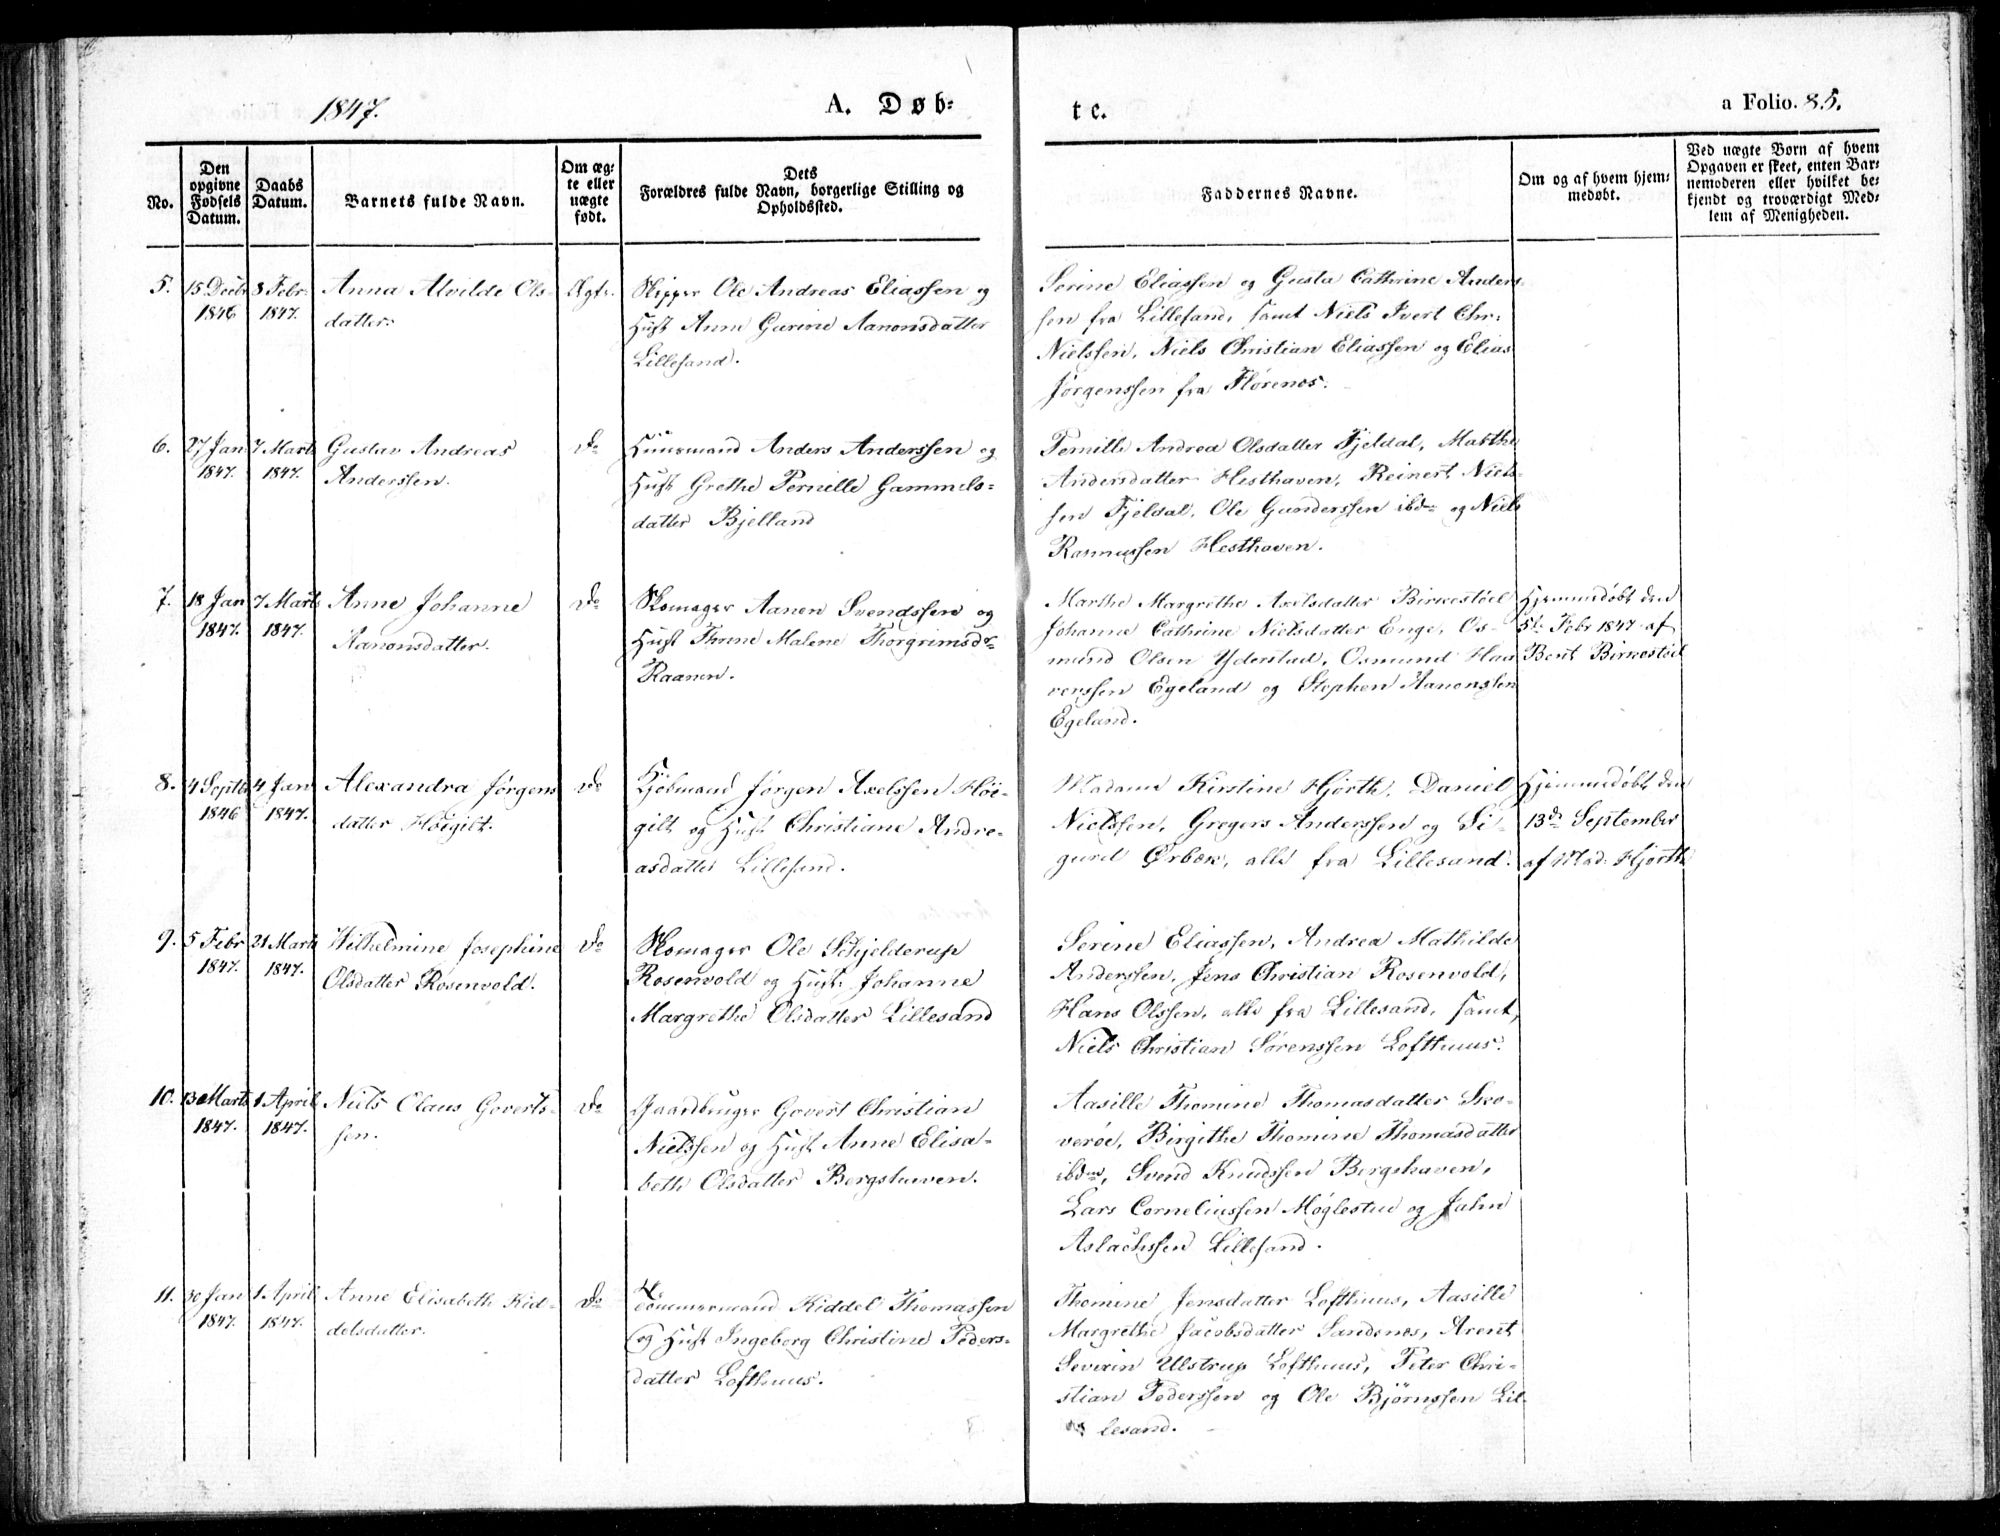 1847.
A. Døb-
te.
a Folio. 85.
No.
Den opgivne Fødsels Datum.
Daabs Datum.
Barnets fulde Navn.
Om ægte eller uægte født.
Dets Forældres fulde Navn, borgerlige Stilling og Opholdssted.
Faddernes Navne.
Om og af hvem hjemmedøbt.
Ved uægte Børn af hvem Opgaven er skeet, enten Barnemoderen eller hvilket bekjendt og troværdigt Medlem af Menigheden.
5.
15 Decbr
1846
8 Febr.
1847.
Anna Alvilde Ols-
datter.
Ægte.
Skipper Ole Andreas Eliassen og
Hust Anne Gurine Aanonsdatter
Lillesand.
Serine Eliassen og Gusta Cathrine Anders
sen fra Lillesand, samt Niels Ivert Chr:
Nielssen, Niels Christian Eliassen og Elias
Jørgenssen fra Flørenæs.
6.
27 Jan
1847.
7 Marts
1847.
Gustav Andreas
Anderssen.
Do
Huusmand Anders Anderssen og
Hust Grethe Pernille Gammels-
datter Bjelland
Pernille Andrea Olsdatter Fjeldal, Marthe
Andersdatter Hesthaven, Reinert Niels-
sen Fjeldal, Ole Gunderssen ibdm og Niels
Rasmussen Hesthaven.
7.
18 Jan
1847.
7 Marts
1847.
Anne Johanne
Aanonsdatter.
Do
Skomager Aanen Svendssen og
Hust Thrine Malene Thorgrimsdr
Raanen.
Marthe Margrethe Axelsdatter Birkestøel
Johanne Cathrine Nielsdatter Enge, Os-
mund Olsen Yderstad, Osmund Haa
verssen Egeland og Stephen Aanonssen
Egeland.
Hjemmedøbt den
5te Febr 1847 af
Bent Birkestøel
8.
4 Septb
1846
4 Jan
1847.
Alexandra Jørgens
datter Høigilt.
Do
Kjøbmand Jørgen Axelssen Høi-
gilt og Hust Christiane Andre-
asdatter Lillesand.
Madame Kirstine Hjorth, Daniel
Nielssen, Gregers Anderssen og Si-
gurd Ørbæk, alle fra Lillesand.
Hjemmedøbt den
13de September
af Mad: Hjorth
9.
5 Febr
1847.
21 Marts
1847.
Wilhelmine Josephine
Olsdatter Rosenvold.
Do
Skomager Ole Schjelderup
Rosenvold og Hust: Johanne
Margrethe Olsdatter Lillesand
Serine Eliassen, Andrea Mathilde
Anderssen, Jens Christian Rosenvold,
Hans Olssen, alle fra Lillesand, samt,
Niels Christian Sørenssen Lofthuus.
10.
13 Marts
1847.
1 April
1847.
Niels Claus Goverts-
sen.
Do
Gaardbruger Govert Christian
Nielssen og Hust Anne Elisa-
beth Olsdatter Bergshaven.
Aasille Thomine Thomasdatter Sko-
verøe, Birgithe Thomine Thomasdatter
ibdm, Svend Knudssen Bergshaven,
Lars Corneliussen Møglestue og Jahn
Aslachssen Lillesand.
11.
30 Jan
1847.
1 April
1847.
Anne Elisabeth Kid-
delsdatter.
Do
Tømmermand Kiddel Thomassen
og Hust Ingeborg Christine Peders-
datter Lofthuus.
Thomine Jensdatter Lofthuus, Aasille
Margrethe Jacobsdatter Sandenæs, Arent
Severin Ulstrup Lofthuus, Peter Chri-
stian Pederssen og Ole Bjørnssen Lil-
lesand.